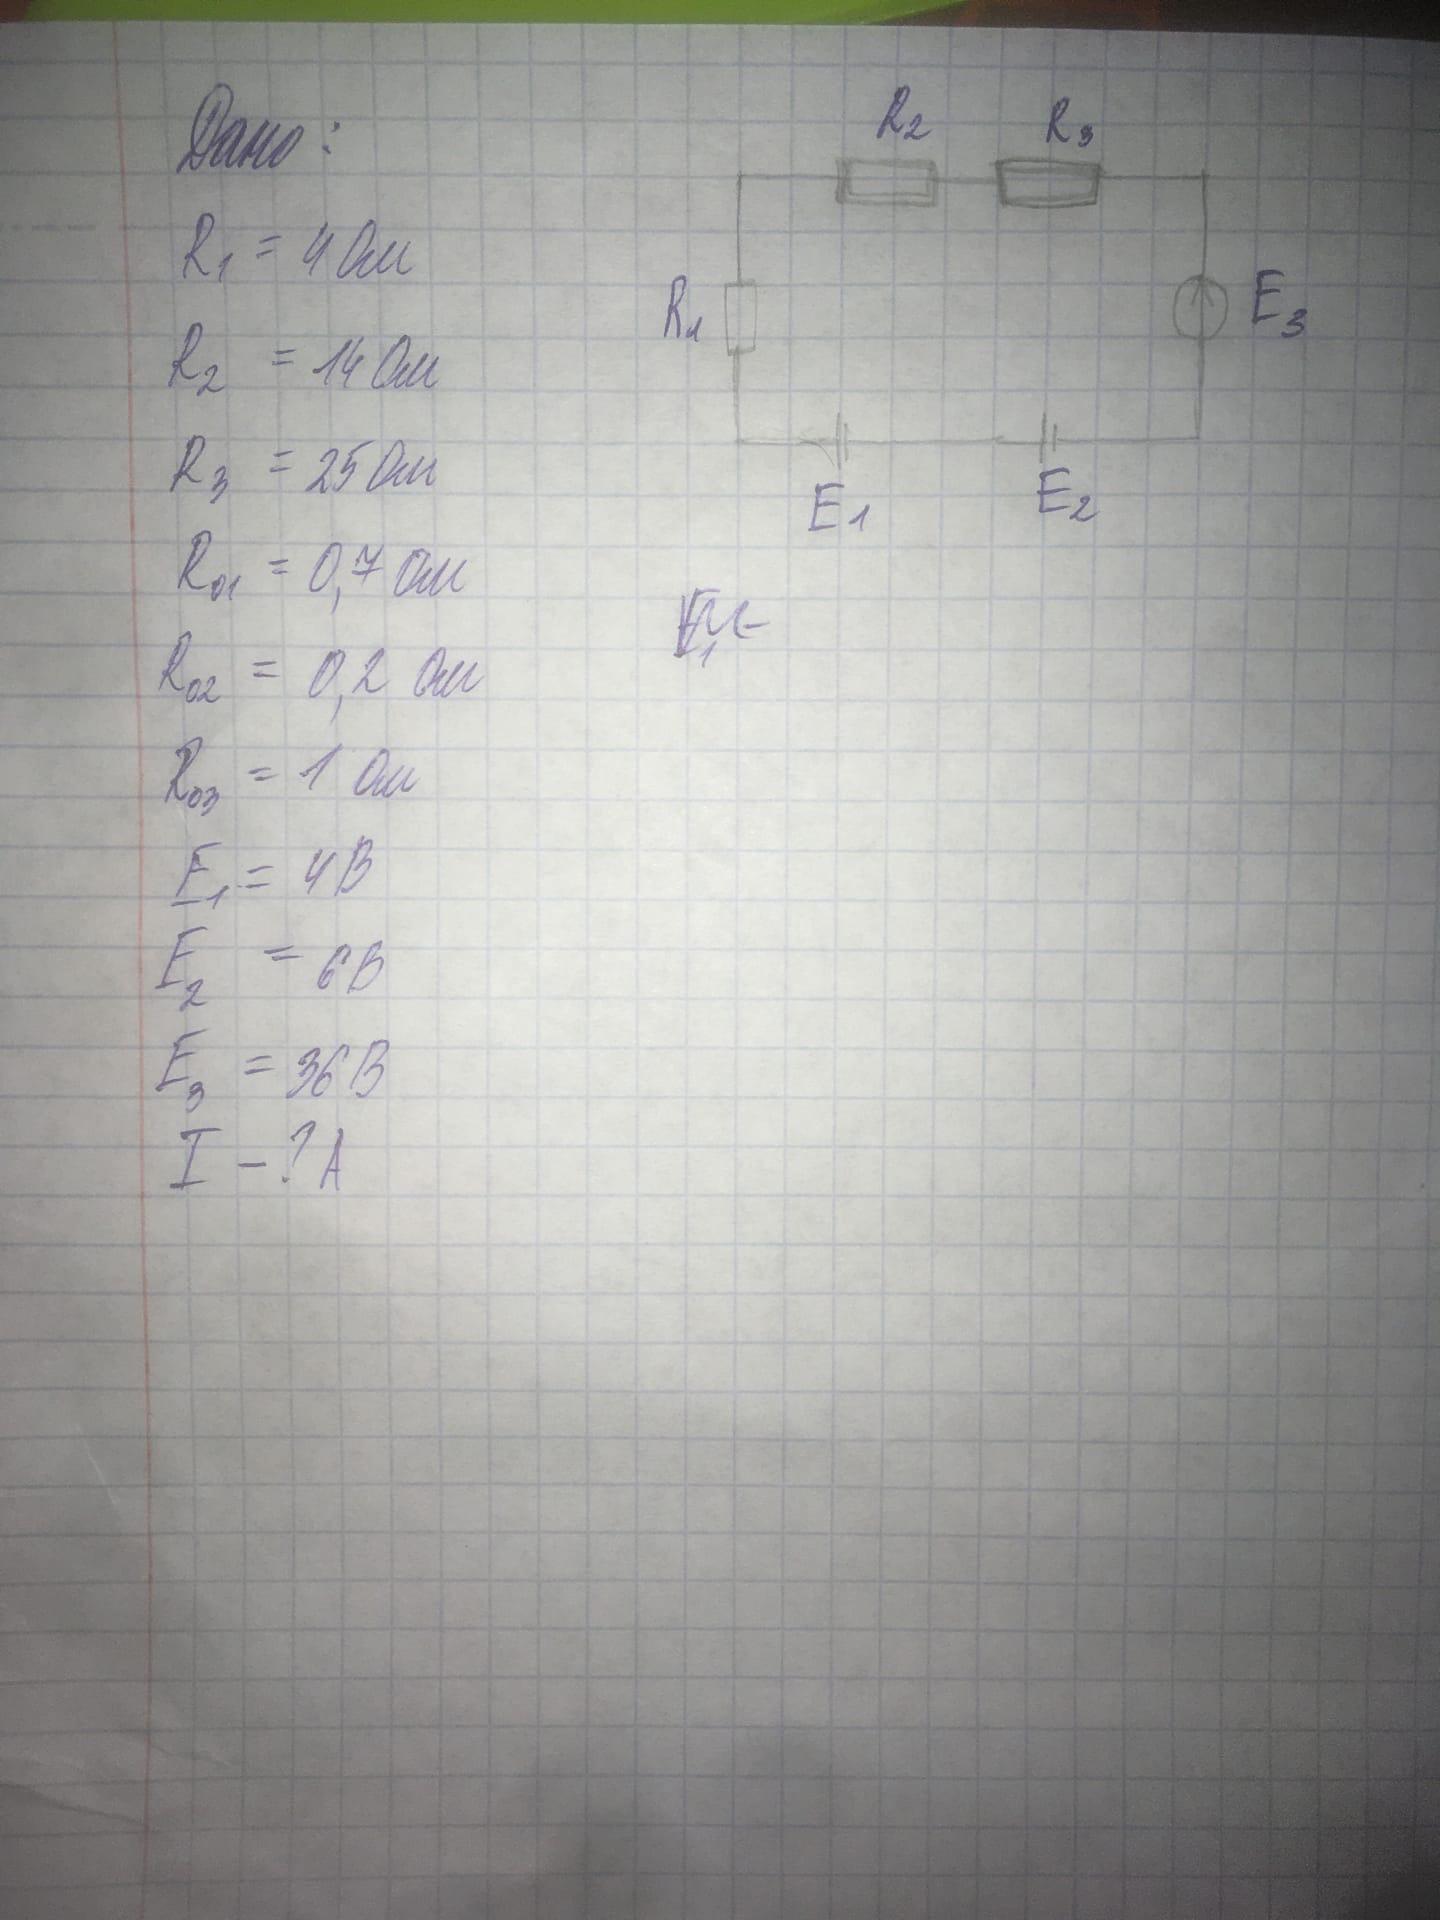 Дано:
R1 = 4 Ом
R2 = 14 Ом
R3 = 25 Ом
R01 = 0,7 Ом
R02 = 0,2 Ом
R03 = 1 Ом
E1 = 4В
E2 = 6В
E3 = 36В
I - ? А
R2 R3
R1
E3
E1 E2